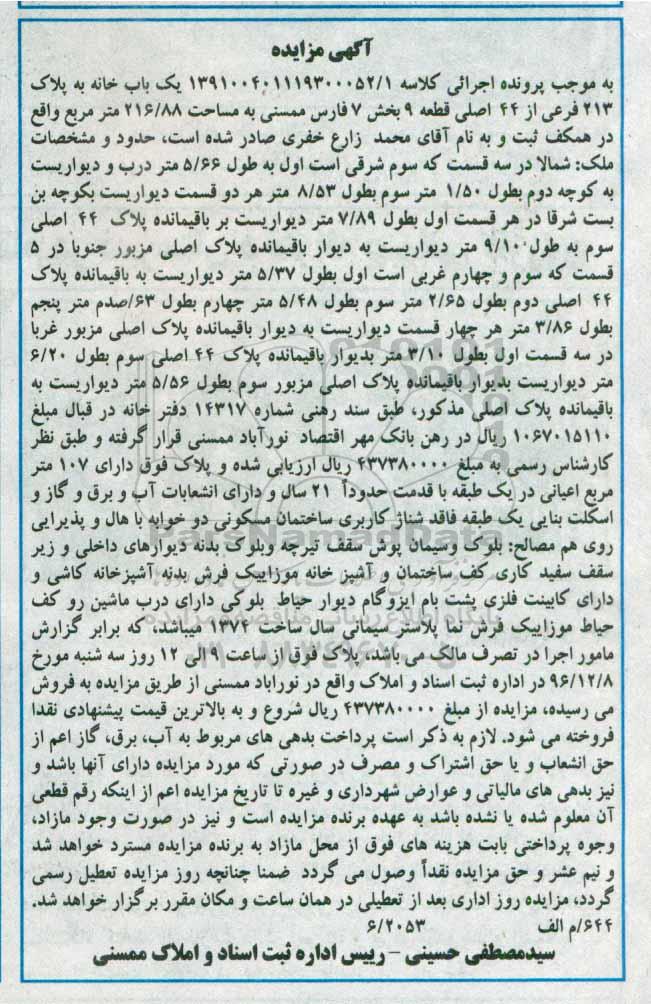 آگهی مزایده
به موجب پرونده اجرائی کلاسه ۱۳۹۱۰۰۴۰۱۱۱۹۳۰۰۰۵۲/۱ یک باب خانه به پلاک
۲۱۳ فرعی از ۴۴ اصلی قطعه ۹ بخش ۷ فارس ممسنی به مساحت ۲۱۶/۸۸ متر مربع واقع
در همکف ثبت و به نام آقای محمد زارع خفری صادر شده است، حدود و مشخصات
ملک: شمالا در سه قسمت که سوم شرقی است اول به طول ۵/۶۶ متر درب و دیواریست
به کوچه دوم بطول ۱/۵۰ متر سوم بطول ۸/۵۳ متر هر دو قسمت دیواریست بکوچه بن
بست شرقا در هر قسمت اول بطول ۷/۸۹ متر دیواریست بر باقیمانده پلاک ۴۴ اصلی
سوم به طول ۹/۱۰ متر دیواریست به دیوار باقیمانده پلاک اصلی مزبور جنوبا در ۵
قسمت که سوم و چهارم غربی است اول بطول ۵/۳۷ متر دیواریست به باقیمانده پلاک
۴۴ اصلی دوم بطول ۲/۶۵ متر سوم بطول ۵/۴۸ متر چهارم بطول ۶۳/صدم متر پنجم
بطول ۳/۸۶ متر هر چهار قسمت دیواریست به دیوار باقیمانده پلاک اصلی مزبور غربا
در سه قسمت اول بطول ۳/۱۰ متر بدیوار باقیمانده پلاک ۴۴ اصلی سوم بطول ۶/۲۰
متر دیواریست بدیوار باقیمانده پلاک اصلی مزبور سوم بطول ۵/۵۶ متر دیواریست به
باقیمانده پلاک اصلی مذکور، طبق سند رهنی شماره ۱۴۳۱۷ دفتر خانه در قبال مبلغ
۱۰۶۷۰۱۵۱۱۰ ریال در رهن بانک مهر اقتصاد نورآباد ممسنی قرار گرفته و طبق نظر
کارشناس رسمی به مبلغ ۴۳۷۳۸۰۰۰۰ ریال ارزیابی شده و پلاک فوق دارای ۱۰۷ متر
مربع اعیانی در یک طبقه با قدمت حدوداً ۲۱ سال و دارای انشعابات آب و برق و گاز و
اسکلت بنایی یک طبقه فاقد شناژ کاربری ساختمان مسکونی دو خوابه با هال و پذیرایی
روی هم مصالح: بلوک وسیمان پوش سقف تیرچه وبلوک بدنه دیوارهای داخلی و زیر
سقف سفید کاری کف ساختمان و آشپز خانه موزاییک فرش بدنه آشپزخانه کاشی و
دارای کابینت فلزی پشت بام ایزوگام دیوار حیاط بلوکی دارای درب ماشین رو کف
حیاط موزاییک فرش نما پلاستر سیمانی سال ساخت ۱۳۷۴ میباشد، که برابر گزارش
مامور اجرا در تصرف مالک می باشد، پلاک فوق از ساعت ۹الی ۱۲ روز سه شنبه مورخ
۹۶/۱۲/۸ در اداره ثبت اسناد و املاک واقع در نورآباد ممسنی از طریق مزایده به فروش
می رسیده، مزایده از مبلغ ۴۳۷۳۸۰۰۰۰ ریال شروع و به بالاترین قیمت پیشنهادی نقدا
فروخته می شود. لازم به ذکر است پرداخت بدهی های مربوط به آب، برق، گاز اعم از
حق انشعاب و یا حق اشتراک و مصرف در صورتی که مورد مزایده دارای آنها باشد و
نیز بدهی های مالیاتی و عوارض شهرداری و غیره تا تاریخ مزایده اعم از اینکه رقم قطعی
آن معلوم شده یا نشده باشد به عهده برنده مزایده است و نیز در صورت وجود مازاد،
وجوه پرداختی بابت هزینه های فوق از محل مازاد به برنده مزایده مسترد خواهد شد
و نیم عشر و حق مزایده نقداً وصول می گردد ضمنا چنانچه روز مزایده تعطیل رسمی
گردد، مزایده روز اداری بعد از تعطیلی در همان ساعت و مکان مقرر برگزار خواهد شد.
۶۴۴/م الف ۶/۲۰۵۳
سیدمصطفی حسینی – رییس اداره ثبت اسناد و املاک ممسنی
ParsNamadData